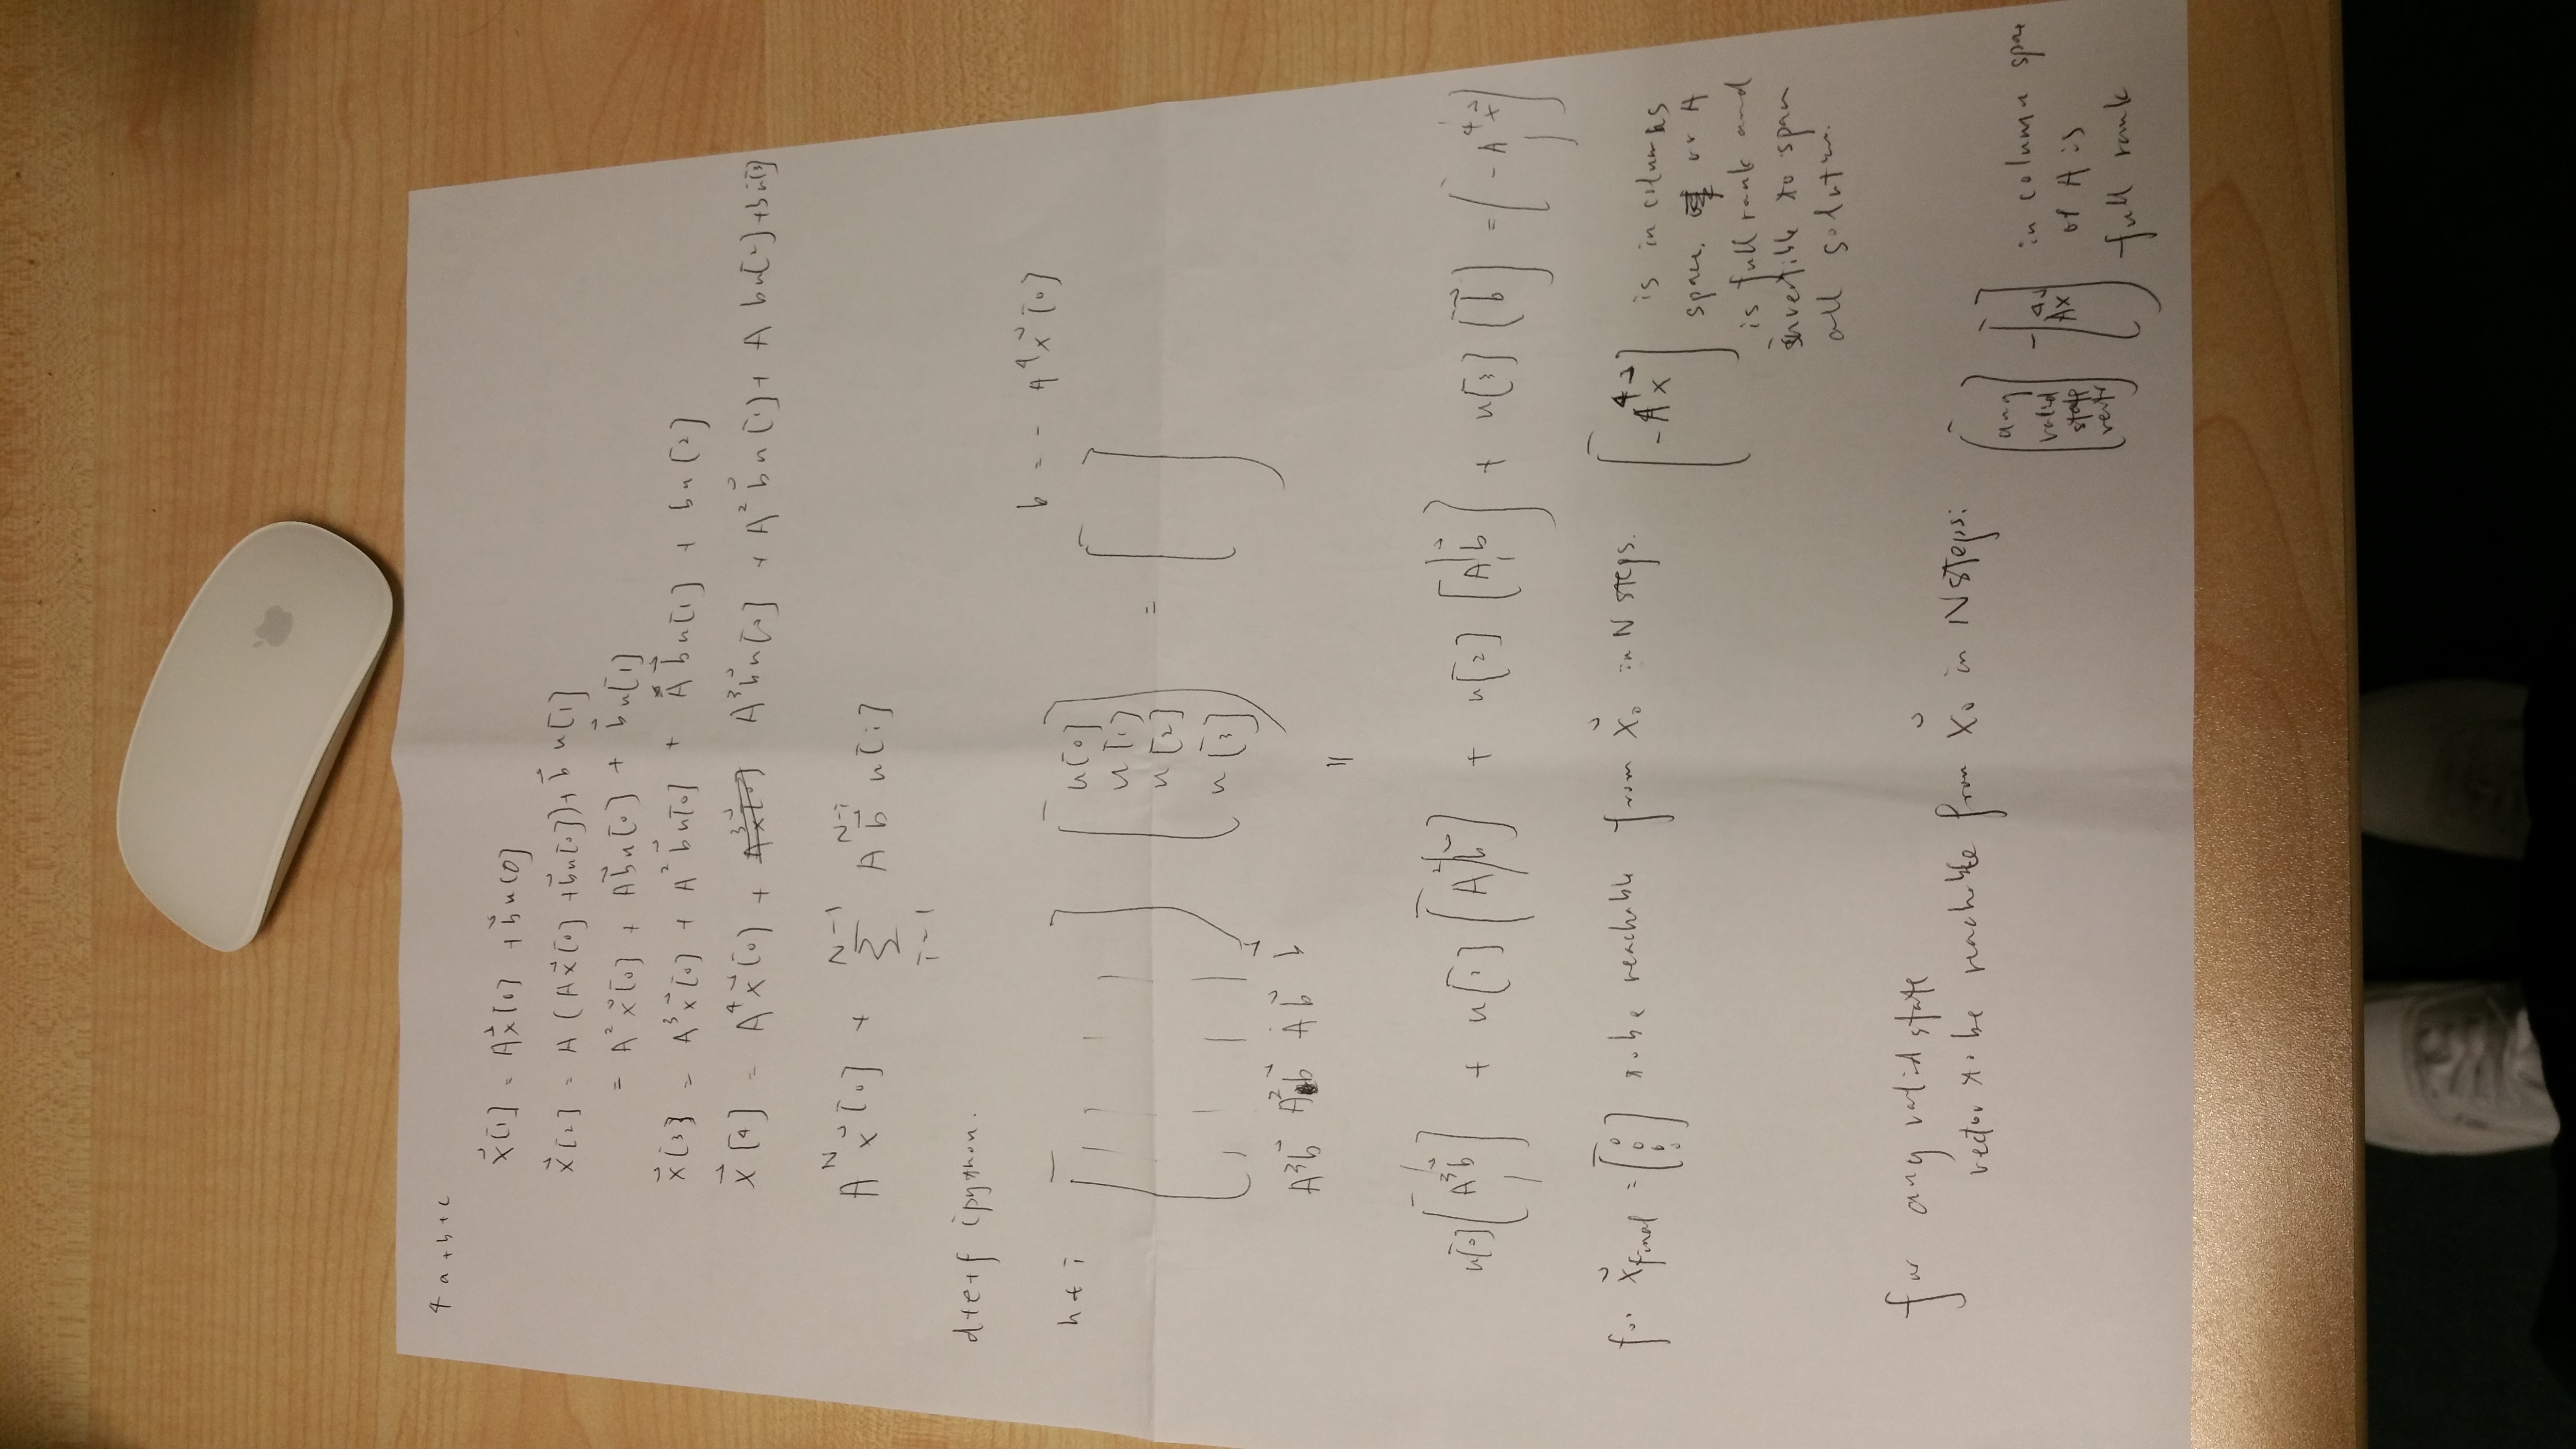 4 a+b+c
x⃗[1] = Ax⃗[0] + b⃗u[0]
x⃗[2] = A(Ax⃗[0] + b⃗u[0]) + b⃗ u[1]
= A²x⃗[0] + Ab⃗u[0] + b⃗u[1]
x⃗[3] = A³x⃗[0] + A²b⃗u[0] + Ab⃗u[1] + bu[2]
x⃗[4] = A⁴x⃗[0] + A³b⃗u[0] + A²b⃗u[1] + A bu[2] + bu[3]
A^N x⃗[0] + ∑_{i=1}^{N-1} A^{N-i} b⃗ u[i]
d+e+f ipython.
b = - A⁴x⃗[0]
h+i [A³b⃗ A²b⃗ Ab⃗ b⃗] [u[0] u[1] u[2] u[3]] = [ ]
||
u[0][A³b⃗] + u[1][A²b⃗] + u[2][Ab⃗] + u[3][b⃗] = [-A⁴x⃗]
for x⃗final = [0 0 0 0] to be reachable from x⃗₀ in N steps. [-A⁴x⃗] is in columns
space. or A
is full rank and
invertible to span
all solution.
for any valid state
vector to be reachable from x⃗₀ in N steps:
[any valid state vector] - [A⁴x] in column space
of A is
full rank